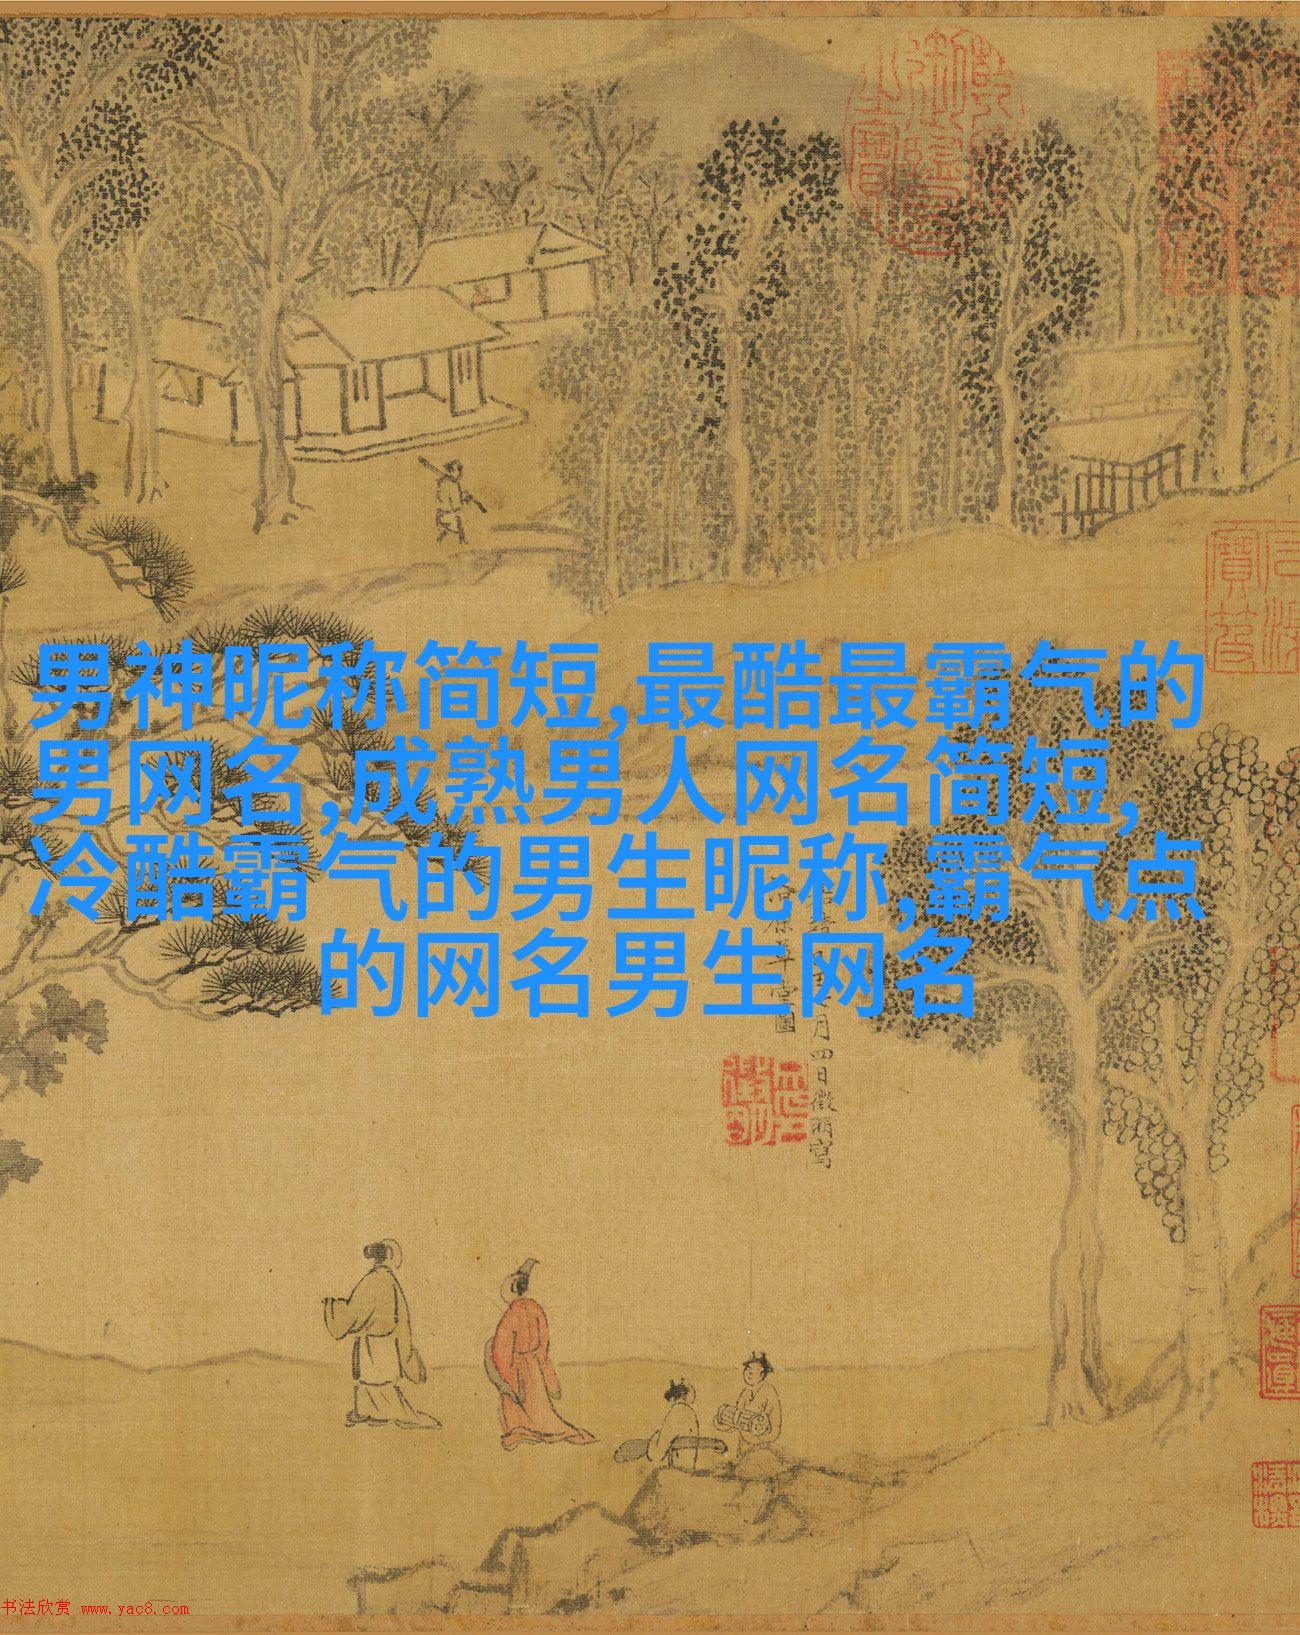 男神昵称简短,最酷最霸气的
男网名,成熟男人网名简短,
冷酷霸气的男生昵称,霸气点
的网名男生网名
月四日徵明寫
书法欣赏 www.yac8.com